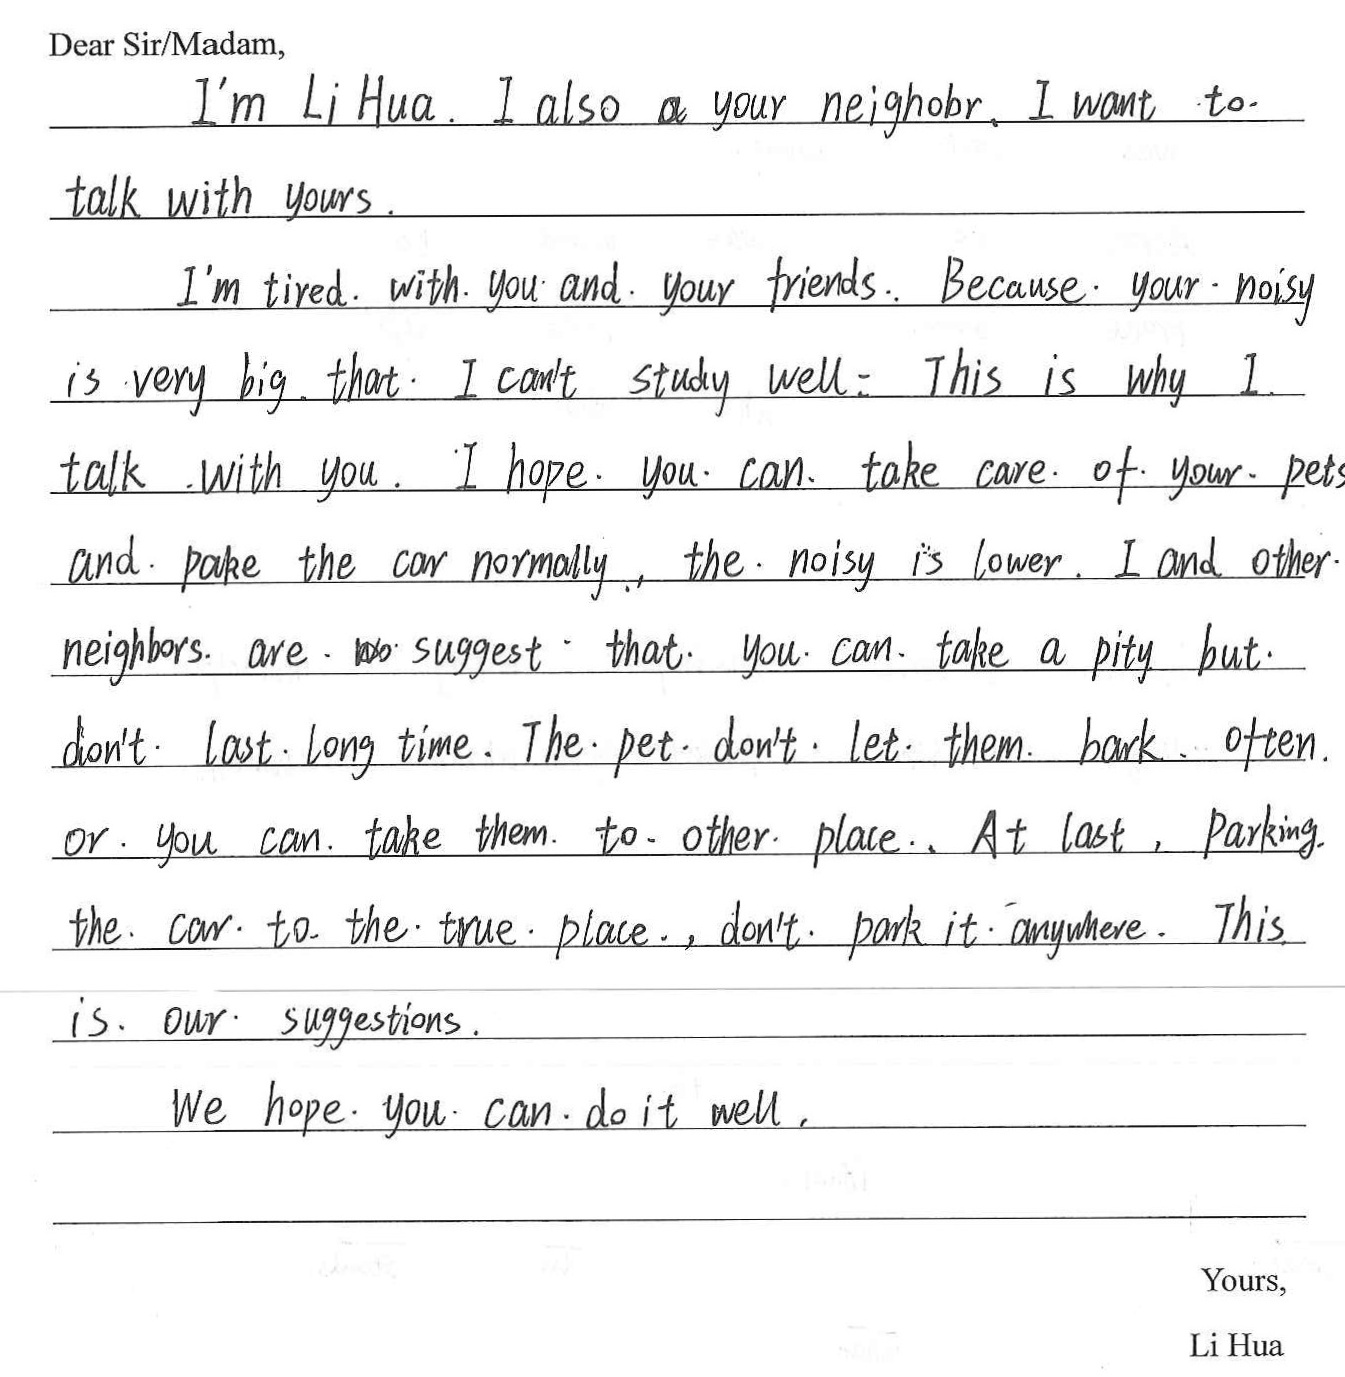 Dear Sir/Madam,
I'm Li Hua. I also a your neighobr. I want to
talk with yours.
I'm tired. with. you and. your friends. Because. your noisy
is very big that. I can't study well. This is why I
talk with you. I hope. you. can. take care. of. your. pets
and. pake the car normally, the. noisy is lower. I and other.
neighbors. are. suggest that. you. can. take a pity but.
don't. last. long time. The. pet. don't. let. them. bark. often.
or. you can. take them. to. other. place. At last, Parking.
the. car. to. the. true. place., don't. park it. anywhere. This
is. our. suggestions.
We hope. you. can. do it well.
Yours,
Li Hua